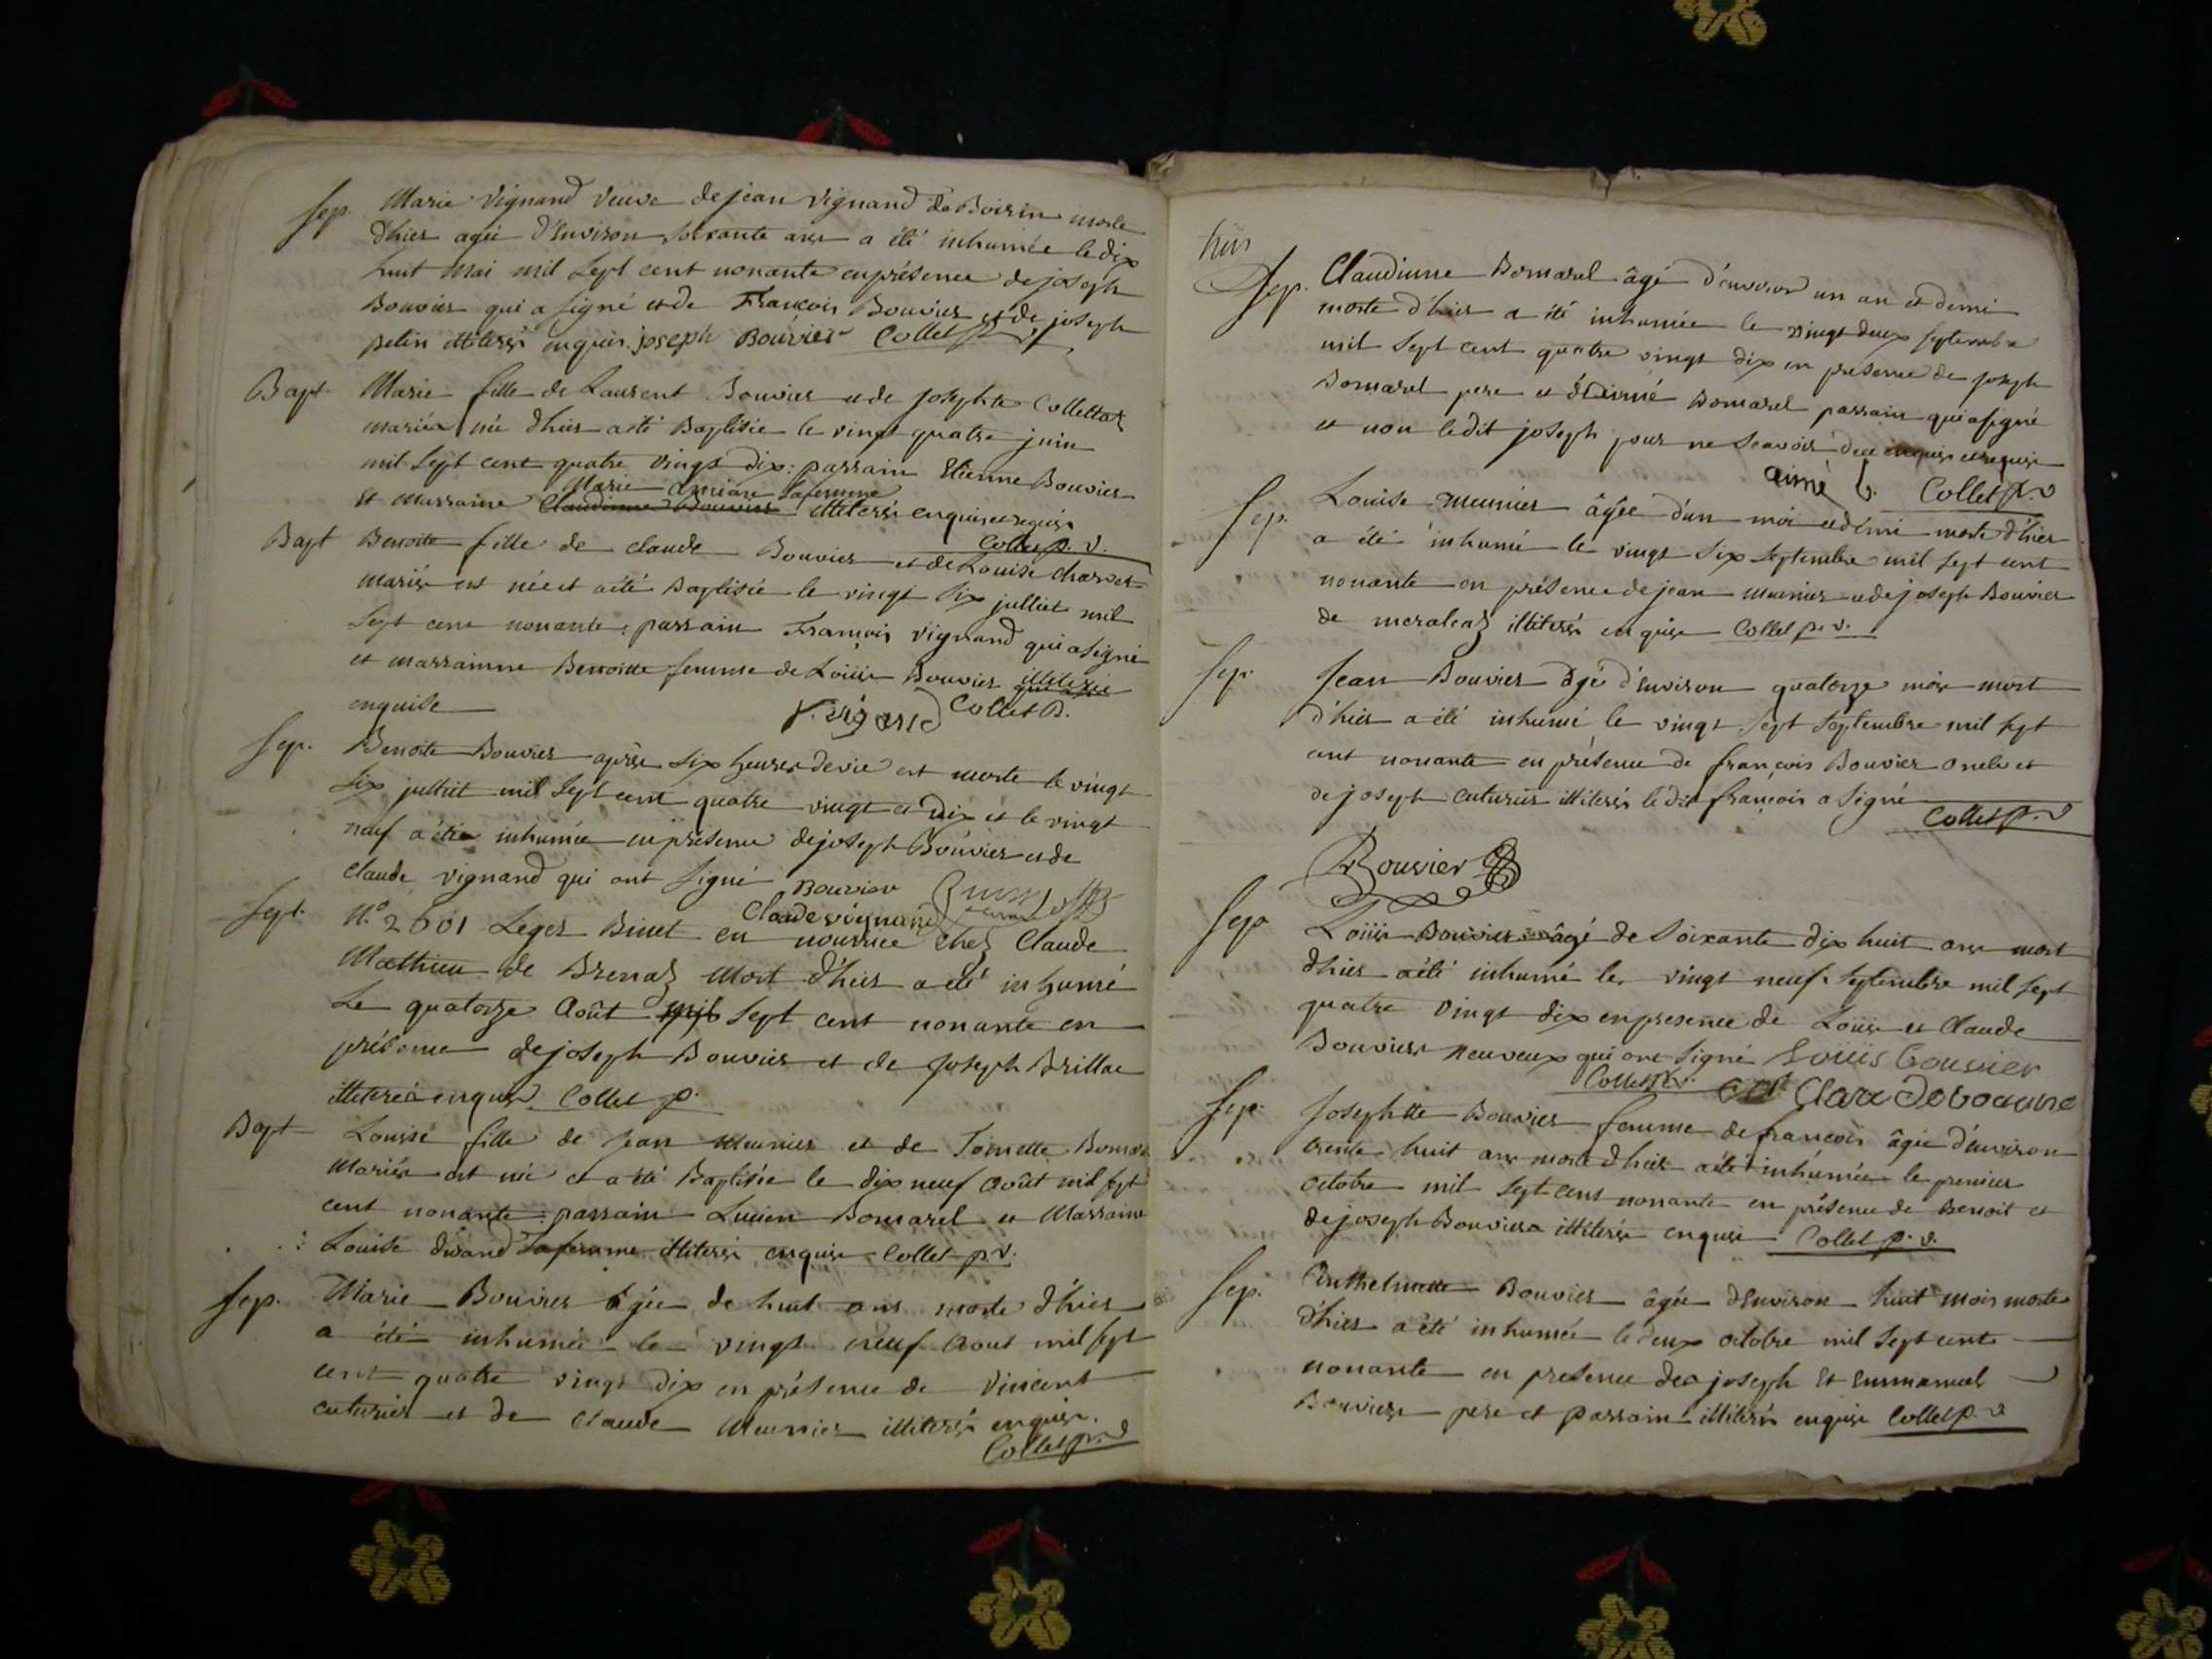 Sep. Marie Vignand Veuve de jean Vignand de Boirin morte
d'hier agée d'Environ soixante ans a été inhumée le dix
huit mai mil Sept cent nonante en présence de joseph
Bouvier qui a signé et de François Bouvier et de joseph
petin illiterés enquis. joseph Bouvier Collet p. v.
Bapt. Marie fille de Laurent Bouvier et de josephte Collettaz
mariés née d'hier a été Baptisée le vingt quatre juin
mil Sept cent quatre vingt dix: parrain Etienne Bouvier
Marie sa femme
et marraine Claudinne Bouvier illiterés enquis et requis
Collet p. v.
Bapt Benoite fille de claude Bouvier et de Louise charvet
mariés est née et a été Baptisée le vingt six julliet mil
Sept cent nonante: parrain François Vignand qui a signé
et marrainne Benoitte femme de Loüis Bouvier illiterée
enquise f. vignand Collet p.
Sep. Benoite Bouvier après six heures de vie est morte le vingt
six julliet mil Sept cent quatre vingt et dix et le vingt
neuf a été inhumée en présence de joseph Bouvier et de
Claude vignand qui ont signé Bouvier
Claude vignand
Sept. N.° 2601 Leger Binet en nourrice chez Claude
Mathieu de Brenaz mort d'hier a été inhumé
Le quatorze Août mil Sept cent nonante en
présence de joseph Bouvier et de joseph Brillat
illiterés enquis Collet p.
Bapt Louise fille de jean Meunier et de Toinette
Mariés est née et a été Baptisée le dix neuf Août mil sept
cent nonante: parrain Lucien Bomarel et Marraine
Louise durand sa femme illiterés enquis Collet p. v.
Sep. Marie Bouvier agée de huit ans morte d'hier
a été inhumée le vingt neuf Aout mil sept
cent quatre vingt dix en présence de Vincent
cuturier et de Claude Meunier illiterés enquis.
Collet p. v
Sep. Claudinne Bomarel âgé d'environ un an et demi
morte d'hier a été inhumée le vingt deux septembre
mil Sept cent quatre vingt dix en présence de joseph
Bomarel pere et d'Aimé Bomarel parrain qui a signé
et non ledit joseph pour ne Scavoir de ce enquis et requis
aimé b. Collet p. v
Sep. Louise meunier âgée d'un moi et demi morte d'hier
a été inhumé le vingt six septembre mil sept cent
nonante en présence de jean meunier et de joseph Bouvier
de meraleaz illiterés enquis Collet p. v.
Sep. Jean Bouvier agé d'Environ quatorze mois mort
d'hier a été inhumé le vingt Sept Septembre mil sept
cent nonante en présence de françois Bouvier oncle et
de joseph cuturier illiterés le dit françois a signé
Collet p. v
Bouvier
Sep Loüis Bouvier âgé de soixante dix huit ans mort
d'hier a été inhumé le vingt neuf Septembre mil sept
quatre vingt dix en presence de Loüis et Claude
Bouvier neuveux qui ont signé Loüis bouvier
Collet p. v.
Sep. Josephtte Bouvier femme de françois âgée d'environ
trente huit ans morte d'hier a été inhumée le premier
octobre mil Sept cent nonante en présence de Benoit et
de joseph Bouvier illiterés enquis Collet p. v.
Sep. Anthelmette Bouvier âgée d'Environ huit mois morte
d'hier a été inhumée le deux octobre mil Sept cent
nonante en presence de joseph Et Emmanuel
Bouvier pere et parrain illiterés enquis Collet p. v